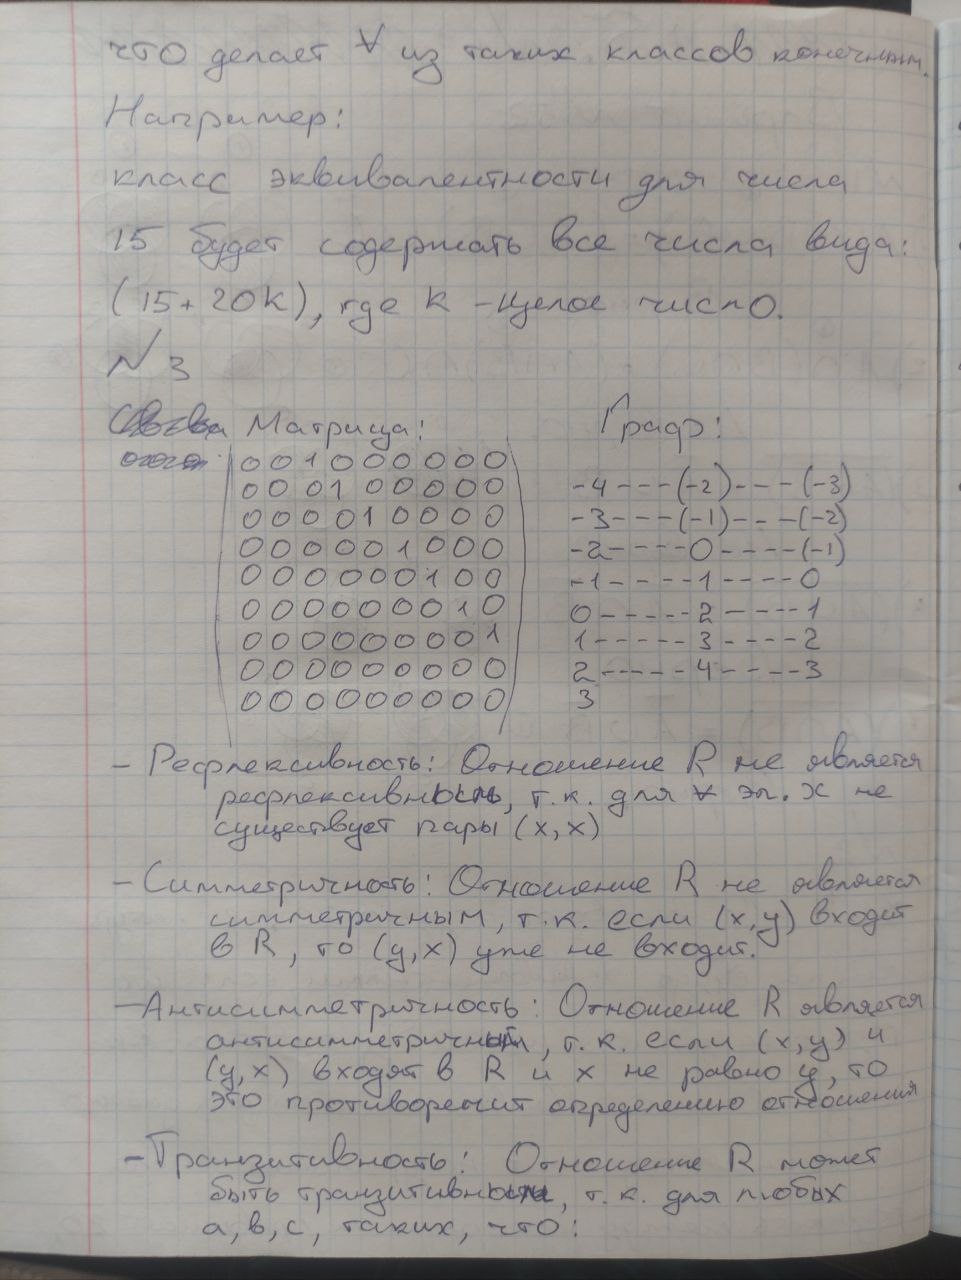 что делает ∀ из таких классов конечным.
Например:
класс эквивалентности для числа
15 будет содержать все числа вида:
(15+20k), где k - целое число.
№3
Матрица: Граф:
0 0 1 0 0 0 0 0 0
0 0 0 1 0 0 0 0 0 -4---(-2)---(-3)
0 0 0 0 1 0 0 0 0 -3----(-1)---(-2)
0 0 0 0 0 1 0 0 0 -2----0----(-1)
0 0 0 0 0 0 1 0 0 -1-----1----0
0 0 0 0 0 0 0 1 0 0-----2-----1
0 0 0 0 0 0 0 0 1 1------3----2
0 0 0 0 0 0 0 0 0 2-----4----3
0 0 0 0 0 0 0 0 0 3
- Рефлексивность: Отношение R не является
рефлексивным, т.к. для ∀ эл. x не
существует пары (x,x)
- Симметричность: Отношение R не является
симметричным, т.к. если (x,y) входит
в R, то (y,x) уже не входит.
- Антисимметричность: Отношение R является
антисимметричным, т.к. если (x,y) и
(y,x) входят в R и x не равно y, то
это противоречит определению отношения
- Транзитивность: Отношение R может
быть транзитивным, т.к. для любых
a, b, c, таких, что: